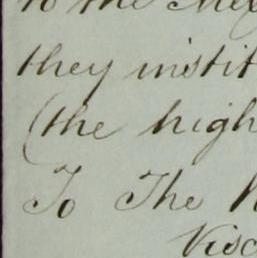 to the Mex
they instit
(the high
To The
Visc